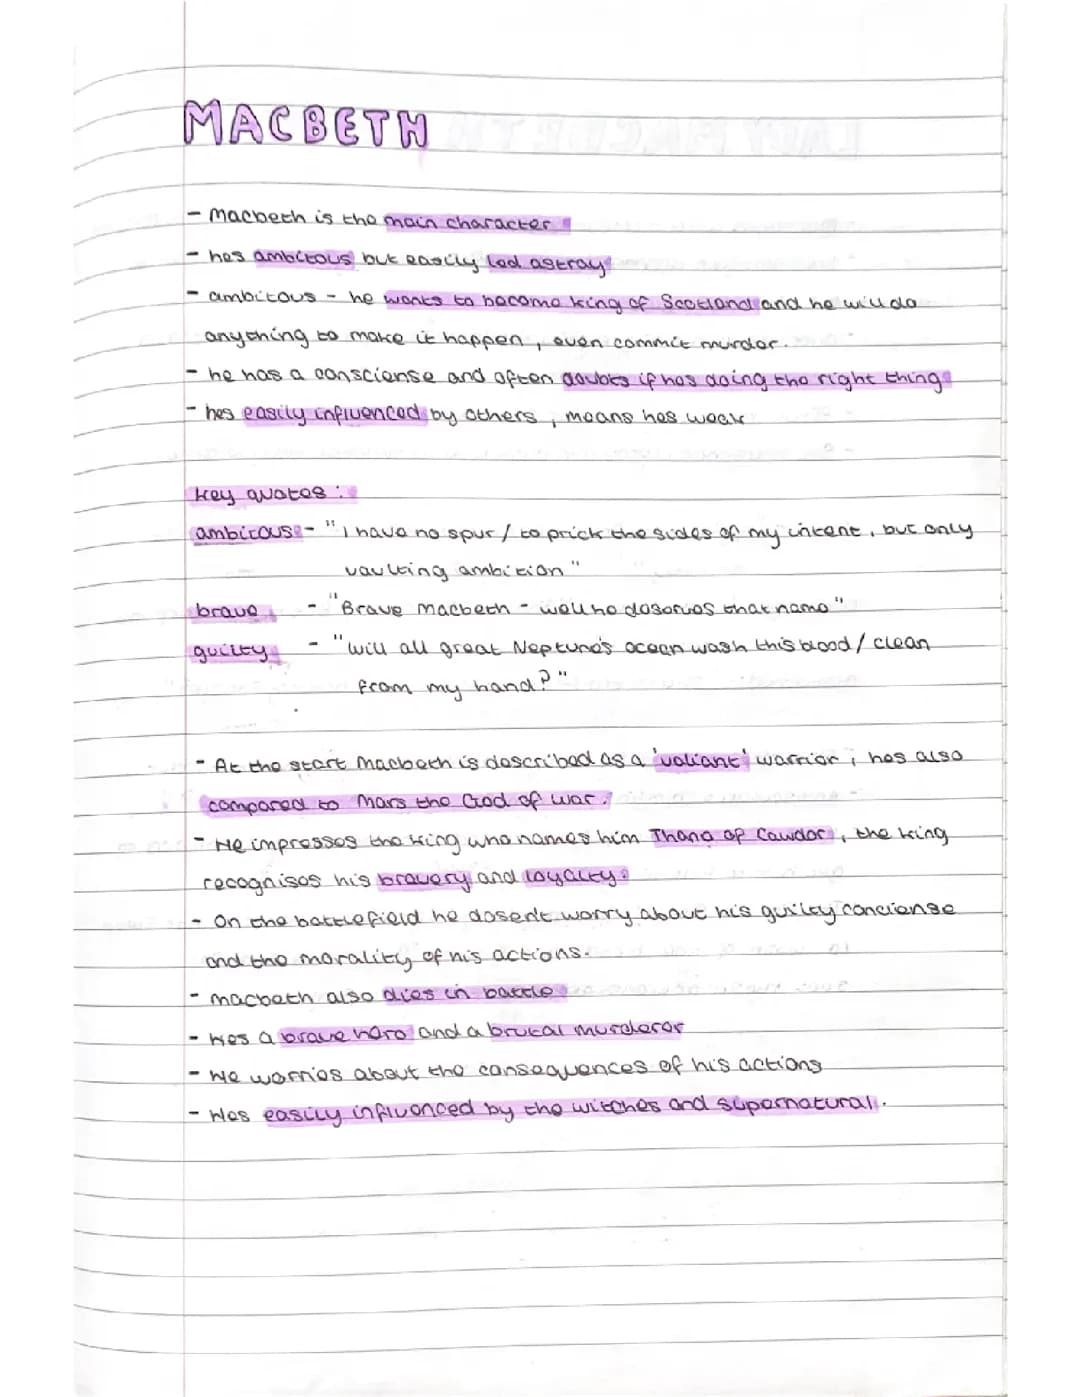 MACBETH
- Macbeth is the main character
- hes ambitous but easily led astray
- ambitous - he wants to become king of Scotland and he will do
anything to make it happen, even commit murder.
- he has a consciense and often doubts if hes doing the right thing
- hes easily influenced by others, means hes weak
key quotes:
ambitous - "I have no spur / to prick the sides of my intent, but only
vaulting ambition"
brave - "Brave Macbeth - well he deserves that name"
guilty - "will all great Neptune's ocean wash this blood / clean
from my hand?"
- At the start Macbeth is described as a 'valiant' warrior, hes also
compared to Mars the God of war.
- He impresses the king who names him Thane of Cawdor, the king
recognises his bravery and loyalty.
- On the battlefield he dosen't worry about his guiltey conciense
and the morality of his actions.
- macbeth also dies in battle
- Hes a brave hero and a brutal murderer
- He worries about the consequences of his actions
- Hes easily influenced by the witches and supernatural.